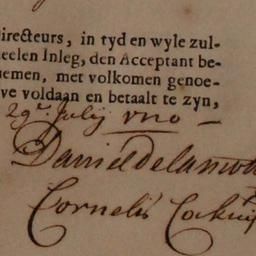 irecteurs, in tyd en wyle zul-
eelen Inleg, den Acceptant be-
nemen, met volkomen genoe-
ve voldaan en betaalt te zyn,
29e. Julij
Daniel delano
Cornelis